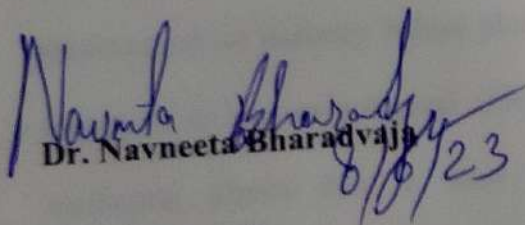 Navneeta Bharadvaja
Dr. Navneeta Bharadvaja
8/6/23